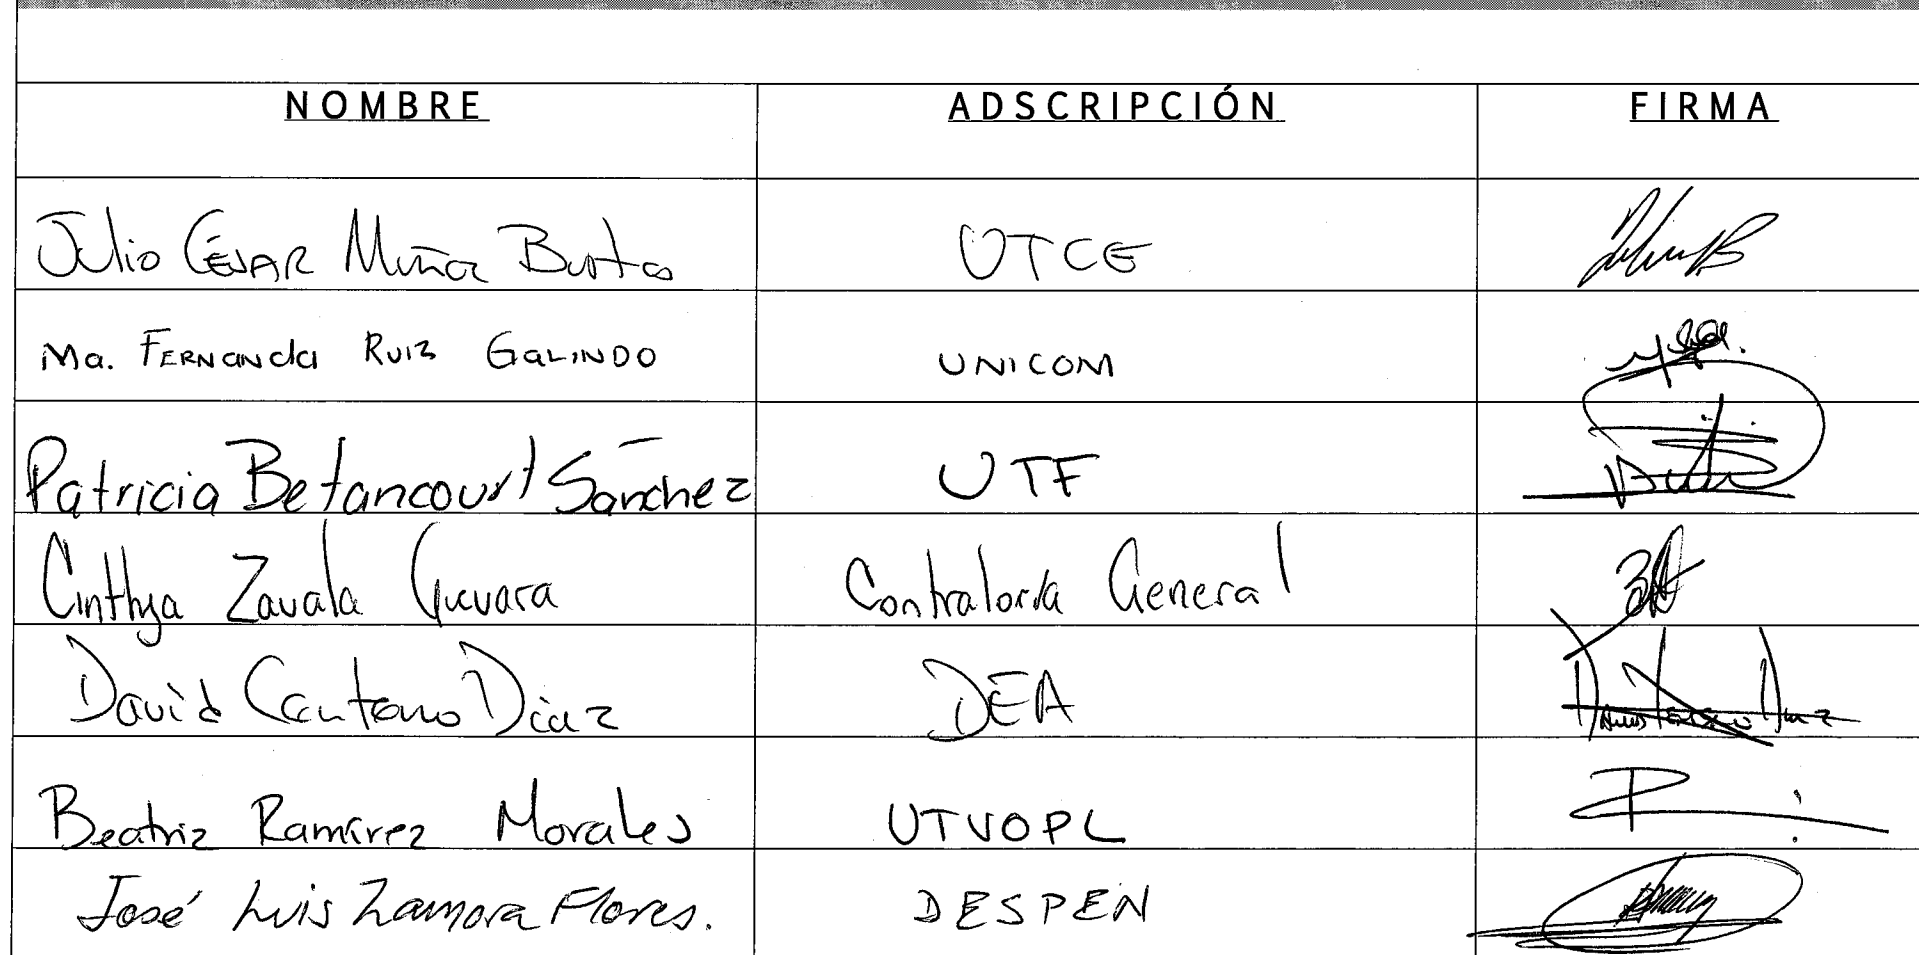 NOMBRE ADSCRIPCIÓN FIRMA
Julio César Muñoz Bustos UTCE
Ma. Fernanda Ruiz Galindo UNICOM
Patricia Betancourt Sánchez UTF
Cinthya Zavala Guevara Contraloría General
David Díaz DEA
Beatriz Ramírez Morales UTVOPL
José Luis Zamora Flores. DESPEN